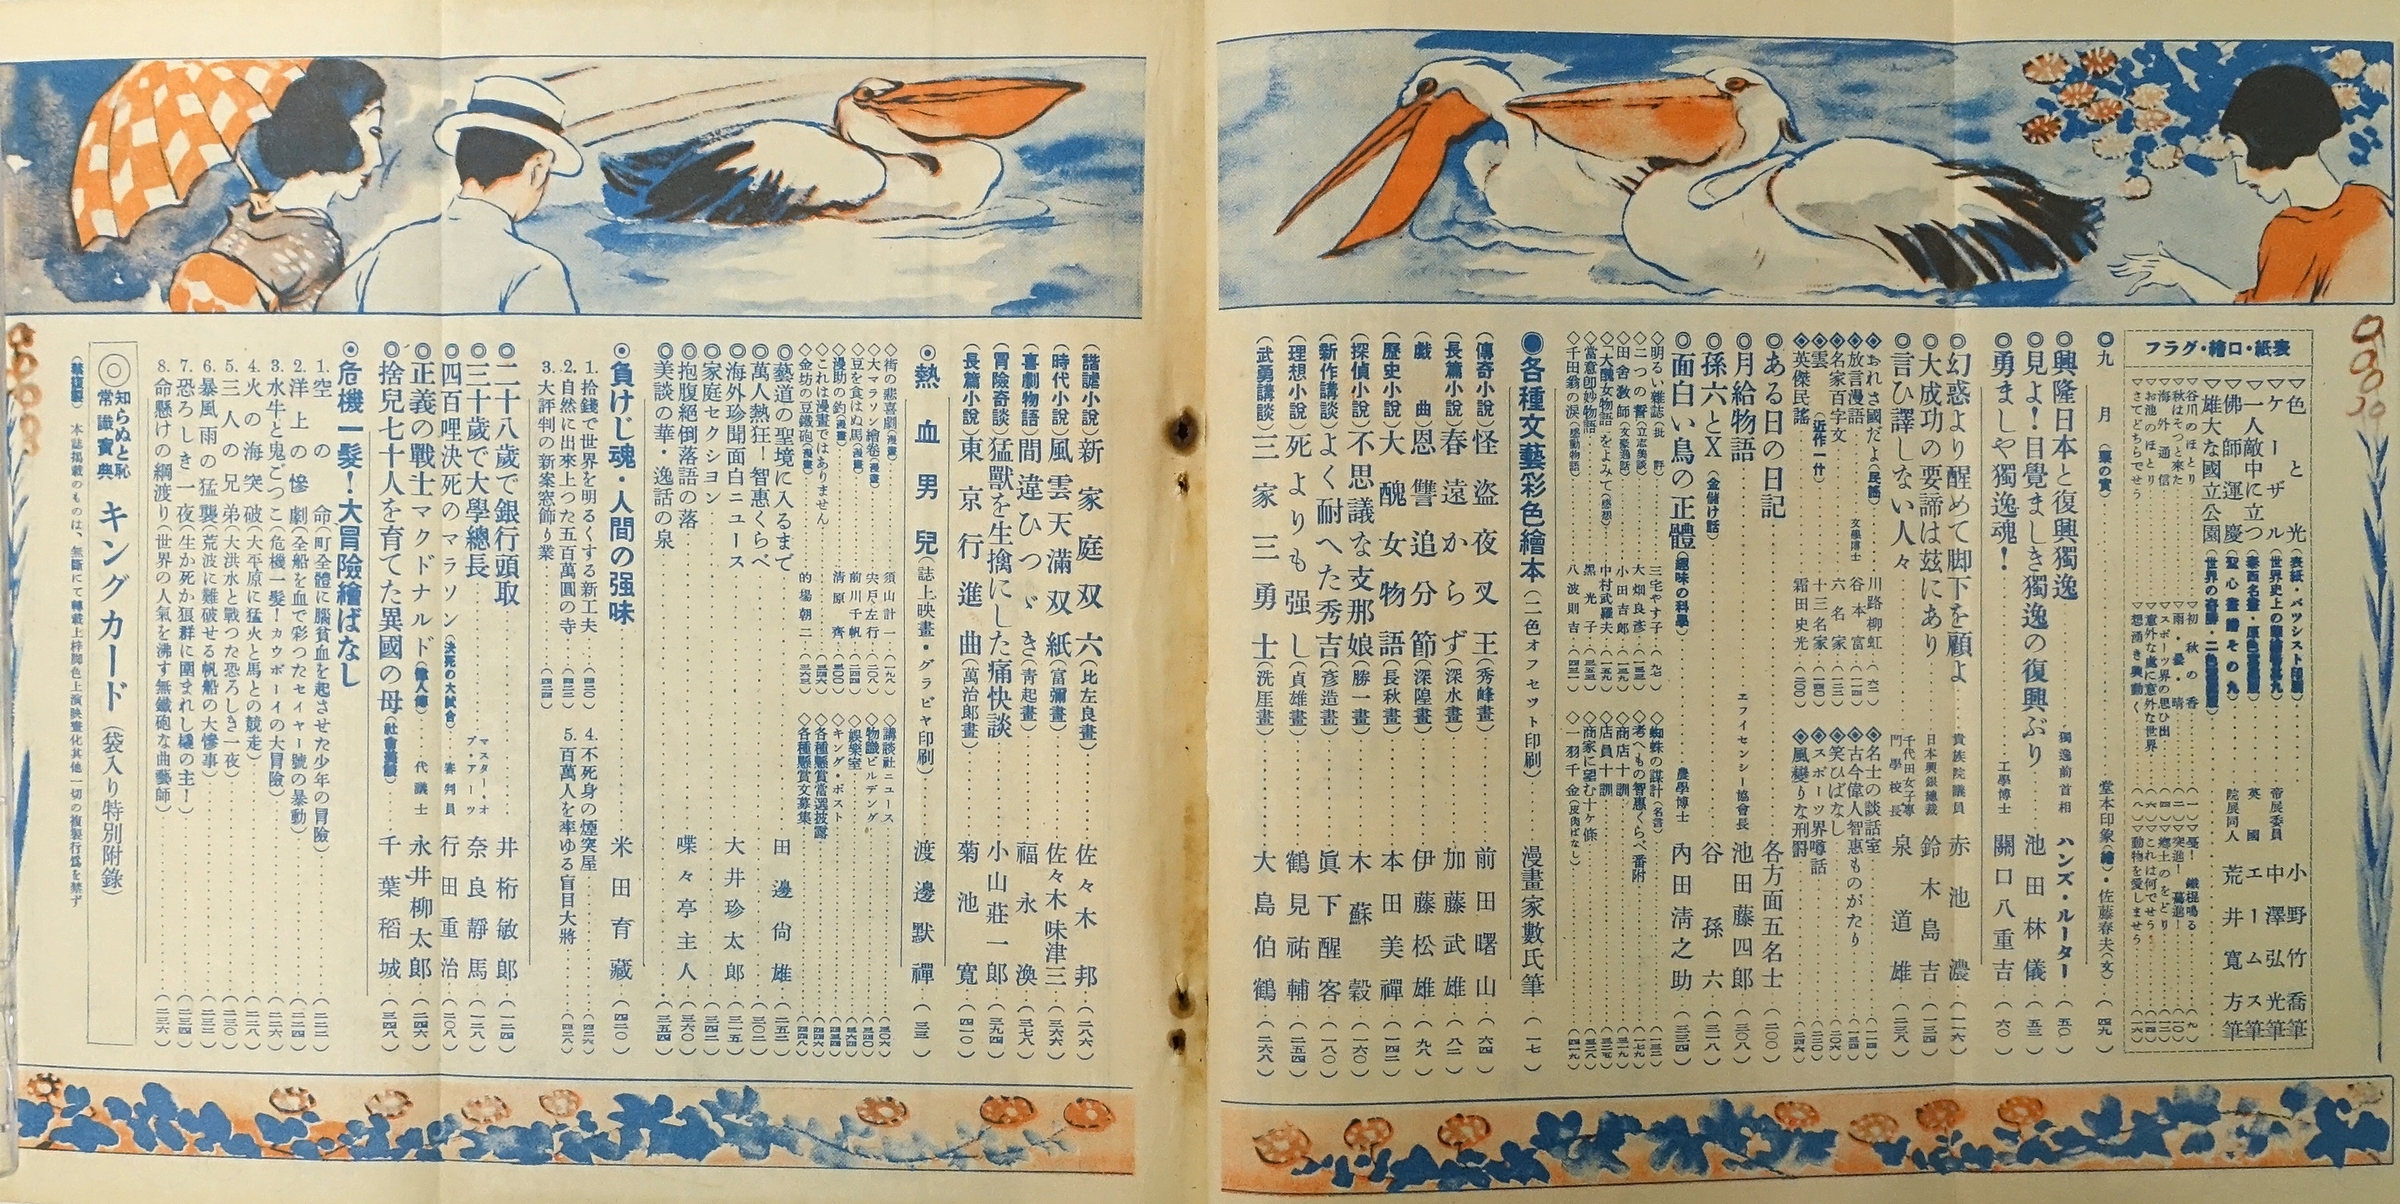 表紙・口繪・グラフ
▽色と光(表紙・パツシスト印刷)……帝展委員 小野竹喬筆
▽ケーザル(世界史上の 其九)……帝展委員 中澤弘光筆
▽一人敵中に立つ(泰西名畫・原色版)……英國 エームス筆
▽佛師運慶(聖心畫譜その九)……院展同人 荒井寬方筆
▽雄大な國立公園(世界の奇勝・二色)
▽谷川のほとり
▽初秋の香……(一)
▽憂! 鐵提鳴る……(九)
▽秋はそつと來た
▽雨・曇・晴……(二)
▽突進! 驀進!……(一〇)
▽海外通信
▽スポーツ界の思ひ出……(四)
▽鄕土のをどり……(一二)
▽お池のほとり
▽意外な處に意外な世界……(六)
▽これは何でせう……(一四)
▽さてどちらでせう
▽想湧き興動く……(八)
▽動物を愛しませう……(一六)
◎九月(栗の實)……堂本印象(繪)・佐藤春夫(文)…(四九)
◎興隆日本と復興獨逸……獨逸前首相 ハンズ・ルーター…(五〇)
◎見よ!目覺ましき獨逸の復興ぶり……池田林儀…(五三)
◎勇ましや獨逸魂!……工學博士 關口八重吉…(六〇)
◎幻惑より醒めて脚下を顧よ……貴族院議員 赤池濃…(一二六)
◎大成功の要諦は玆にあり……日本興銀總裁 鈴木島吉…(一三四)
◎言ひ譯しない人々……千代田女子專門學校長 泉道雄…(二三八)
◈おれさ國だよ(民謠)……川路柳虹・(六二)
◈名士の談話室……(一一四)
◈放言漫語……文學博士 谷本富・(一一八)
◈古今偉人智惠ものがたり……(一五四)
◈名家百字文……六名家・(一三二)
◈笑ひばなし……(二〇六)
◈雲(近作一什)……十三名家・(一四〇)
◈スポーツ界噂話……(二三〇)
◈英傑民謠……霜田史光・(二〇〇)
◈風變りな刑罰……(二四六)
◎ある日の日記……各方面五名士…(二〇〇)
◎月給物語……ヱフイセンシー協會長 池田藤四郎…(三〇八)
◎孫六とX(金儲け話)……谷孫六…(三二八)
◎面白い鳥の正體(趣味の科學)……農學博士 內田淸之助…(三三四)
◇明るい雜誌(批評)……三宅やす子・(九七)
◇蜘蛛の謀計(名書)……(一三三)
◇二つの誓(立志美談)……大畑良彥・(一五三)
◇考へもの智惠くらべ番附……(一七九)
◇田舍教師(文豪逸話)……小田吉郎・(一九九)
◇商店十訓……(三一九)
◇『大醜女物語』をよみて(感想)……中村武羅夫・(一五九)
◇店員十訓……(三二五)
◇當意卽妙物語……黑光子・(三五三)
◇商家に望む十ケ條……(三二八)
◇千田翁の淚(感動物語)……八波則吉・(四三一)
◇一羽千金(皮肉ばなし)……(四一九)
◉各種文藝彩色繪本(二色オフセット印刷)……漫畫家數氏筆…(一七)
(傳奇小說)怪盜夜叉王(秀峰畫)……前田曙山…(六四)
(長篇小說)春遠からず(深水畫)……加藤武雄…(八二)
(戲曲)恩讐追分節(深隍畫)……伊藤松雄…(九八)
(歷史小說)大醜女物語(長秋畫)……本田美禪…(一四二)
(探偵小說)不思議な支那娘(勝一畫)……木蘇穀…(一六〇)
(新作講談)よく耐へた秀吉(彥造畫)……眞下醒客…(一八〇)
(理想小說)死よりも强し(貞雄畫)……鶴見祐輔…(二五四)
(武勇講談)三家三勇士(洗厓畫)……大島伯鶴…(二六八)
(諧謔小說)新家庭双六(比左良畫)……佐々木邦…(二八六)
(時代小說)風雲天滿双紙(富彌畫)……佐々木味津三…(三六六)
(喜劇物語)間違ひつゞき(靑起畫)……福永渙…(三七八)
(冒險奇談)猛獸を生擒にした痛快談……小山莊一郎…(三九四)
(長篇小說)東京行進曲(萬治郎畫)……菊池寬…(四一〇)
◉熱血男兒(誌上映畫・グラビヤ印刷)……渡邊默禪…(三三)
◇街の悲喜劇(漫畫)……須山計一・(一九八)
◇講談社ニュース……(三〇六)
◇大マラソン繪卷(漫畫)……宍戶左行・(二〇八)
◇物識ビルデング……(三四〇)
◇豆を食はぬ馬(漫畫)……前川千帆・(二四四)
◇娛樂室……(三六四)
◇漫助の釣(漫畫)……淸原齊・(三〇〇)
◇キング・ポスト……(四三四)
◇これは漫畫ではありません……(三四六)
◇各種懸賞當選披露……(四四六)
◇金坊の豆鐵砲(漫畫)……的場朝二・(三六三)
◇各種懸賞文募集……(四四八)
◎藝道の聖境に入るまで……田邊尙雄…(二五二)
◎萬人熱狂!智惠くらべ……(三〇二)
◎海外珍聞面白ニュース……大井珍太郎…(三一五)
◎家庭セクシヨン……(三四二)
◎抱腹絕倒落語の落……喋々亭主人…(三六〇)
◎美談の華・逸話の泉……(三五四)
◉負けじ魂・人間の强味……米田育藏…(四二〇)
1. 拾錢で世界を明るくする新工夫…(四二〇)
4. 不死身の煙突屋……(四二六)
2. 自然に出來上つた五百萬圓の寺…(四二二)
5. 百萬人を率ゆる盲目大將……(四二八)
3. 大評判の新案窓飾り業……(四二四)
◎二十八歲で銀行頭取……井桁敏郎…(一二四)
◎三十歲で大學總長……マスター・オブ・アーツ 奈良靜馬…(一二八)
◎四百哩決死のマラソン(決死の大試合)……審判員 行田重治…(二〇八)
◎正義の戰士マクドナルド(偉人傳)……代議士 永井柳太郎…(二四六)
◎捨兒七十人を育てた異國の母(社會美談)……千葉稻城…(三四八)
◉危機一髮!大冒險繪ばなし
1. 空の命(町全體に腦貧血を起させた少年の冒險)……(二二二)
2. 洋上の慘劇(全船を血で彩つたセイヤー號の暴動)……(二二四)
3. 水牛と鬼ごつこ(危機一髮!カウボーイの大冒險)……(二二六)
4. 火の海突破(大平原に猛火と馬との競走)……(二二八)
5. 三人の兄弟(大洪水と戰つた恐ろしき一夜)……(二三〇)
6. 暴風雨の猛襲(荒波に難破せる帆船の大慘事)……(二三二)
7. 恐ろしき一夜(生か死か狼群に圍まれし橇の主!)……(二三四)
8. 命懸けの綱渡り(世界の人氣を沸す無鐵砲な曲藝師)……(二三六)
◎知らぬと恥 常識寶典 キングカード(袋入り特別附錄)
(禁複製)本誌揭載のものは、無斷にて轉載上梓脚色上演映畫化其他一切の複製行爲を禁ず